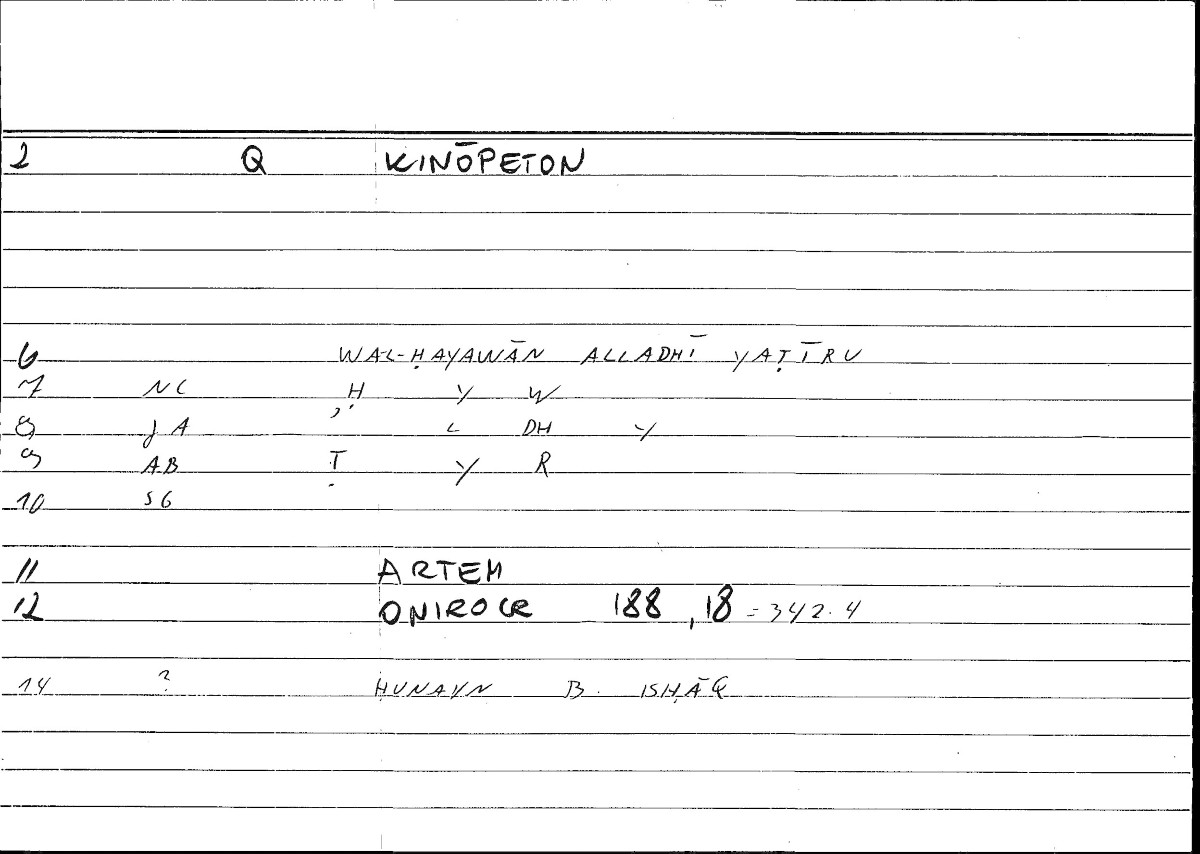 2 Q KINŌPETON
6 WAL-ḤAYAWĀN ALLADHĪ YAṬĪRU
7 NC Ḥ Y W
8 JA , L DH Y
9 AB Ṭ Y R
10 SG
11 ARTEM
12 ONIROCR 188,18 = 342.4
14 ? ḤUNAYN B. ISḤĀQ